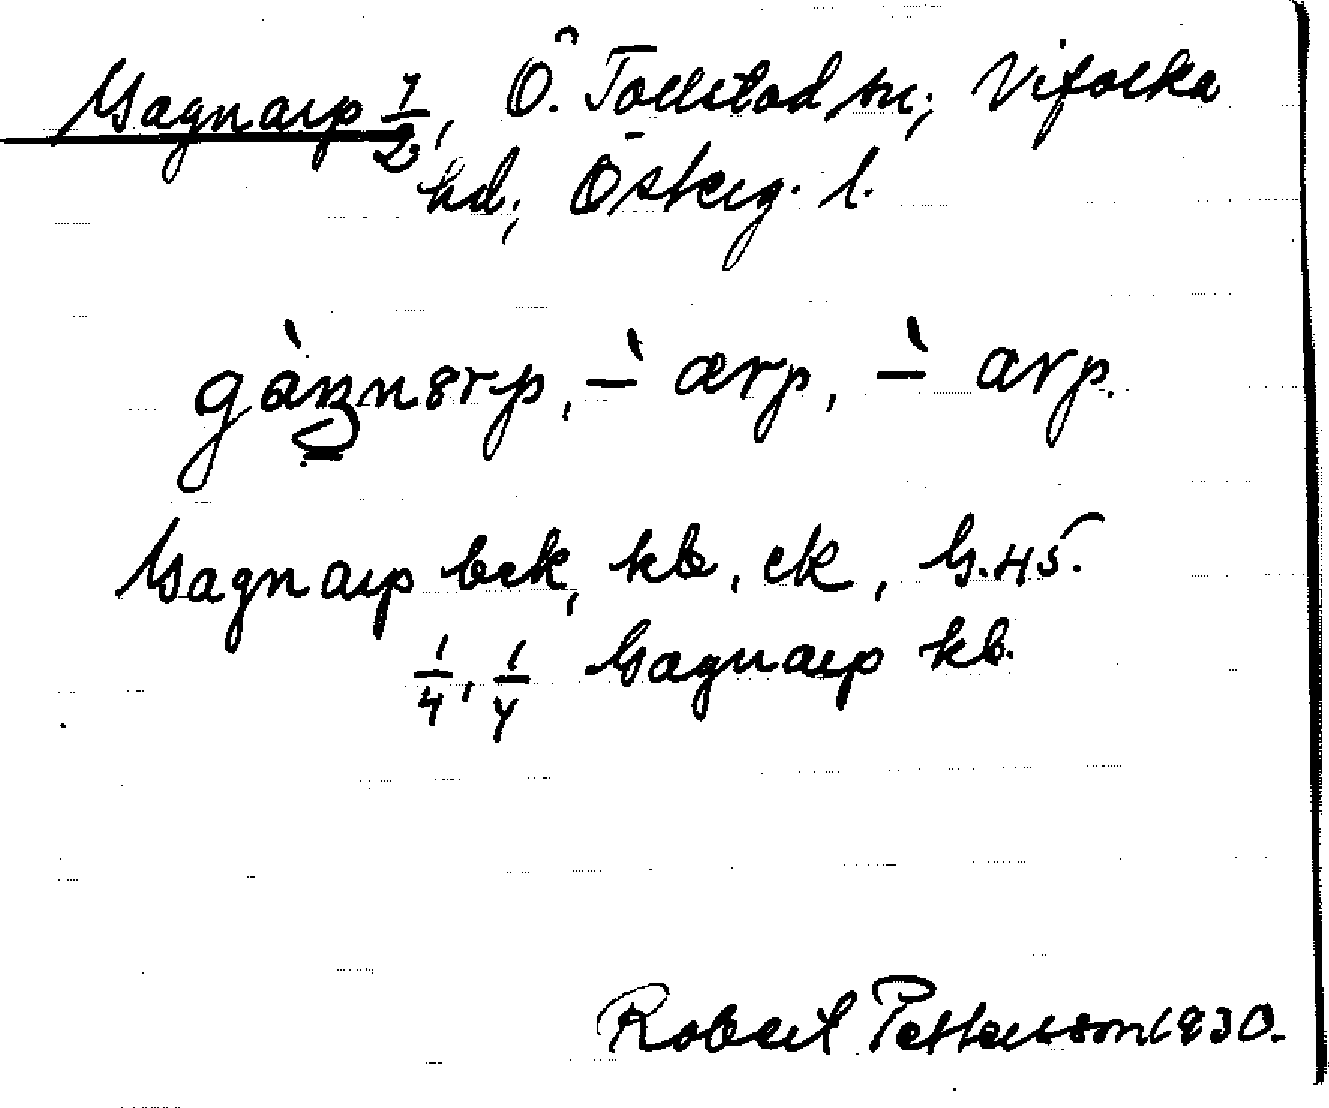 Gagnarp 1/2, Ö. Tollstad sn; Vifolka
hd; Österg. l.
gàŋnərp, –̀ ærp, –̀ arp.
Gagnarp bek, kb, ek, G.45.
1/4, 1/4 Gagnarp kb.
Robert Petterson 1930.